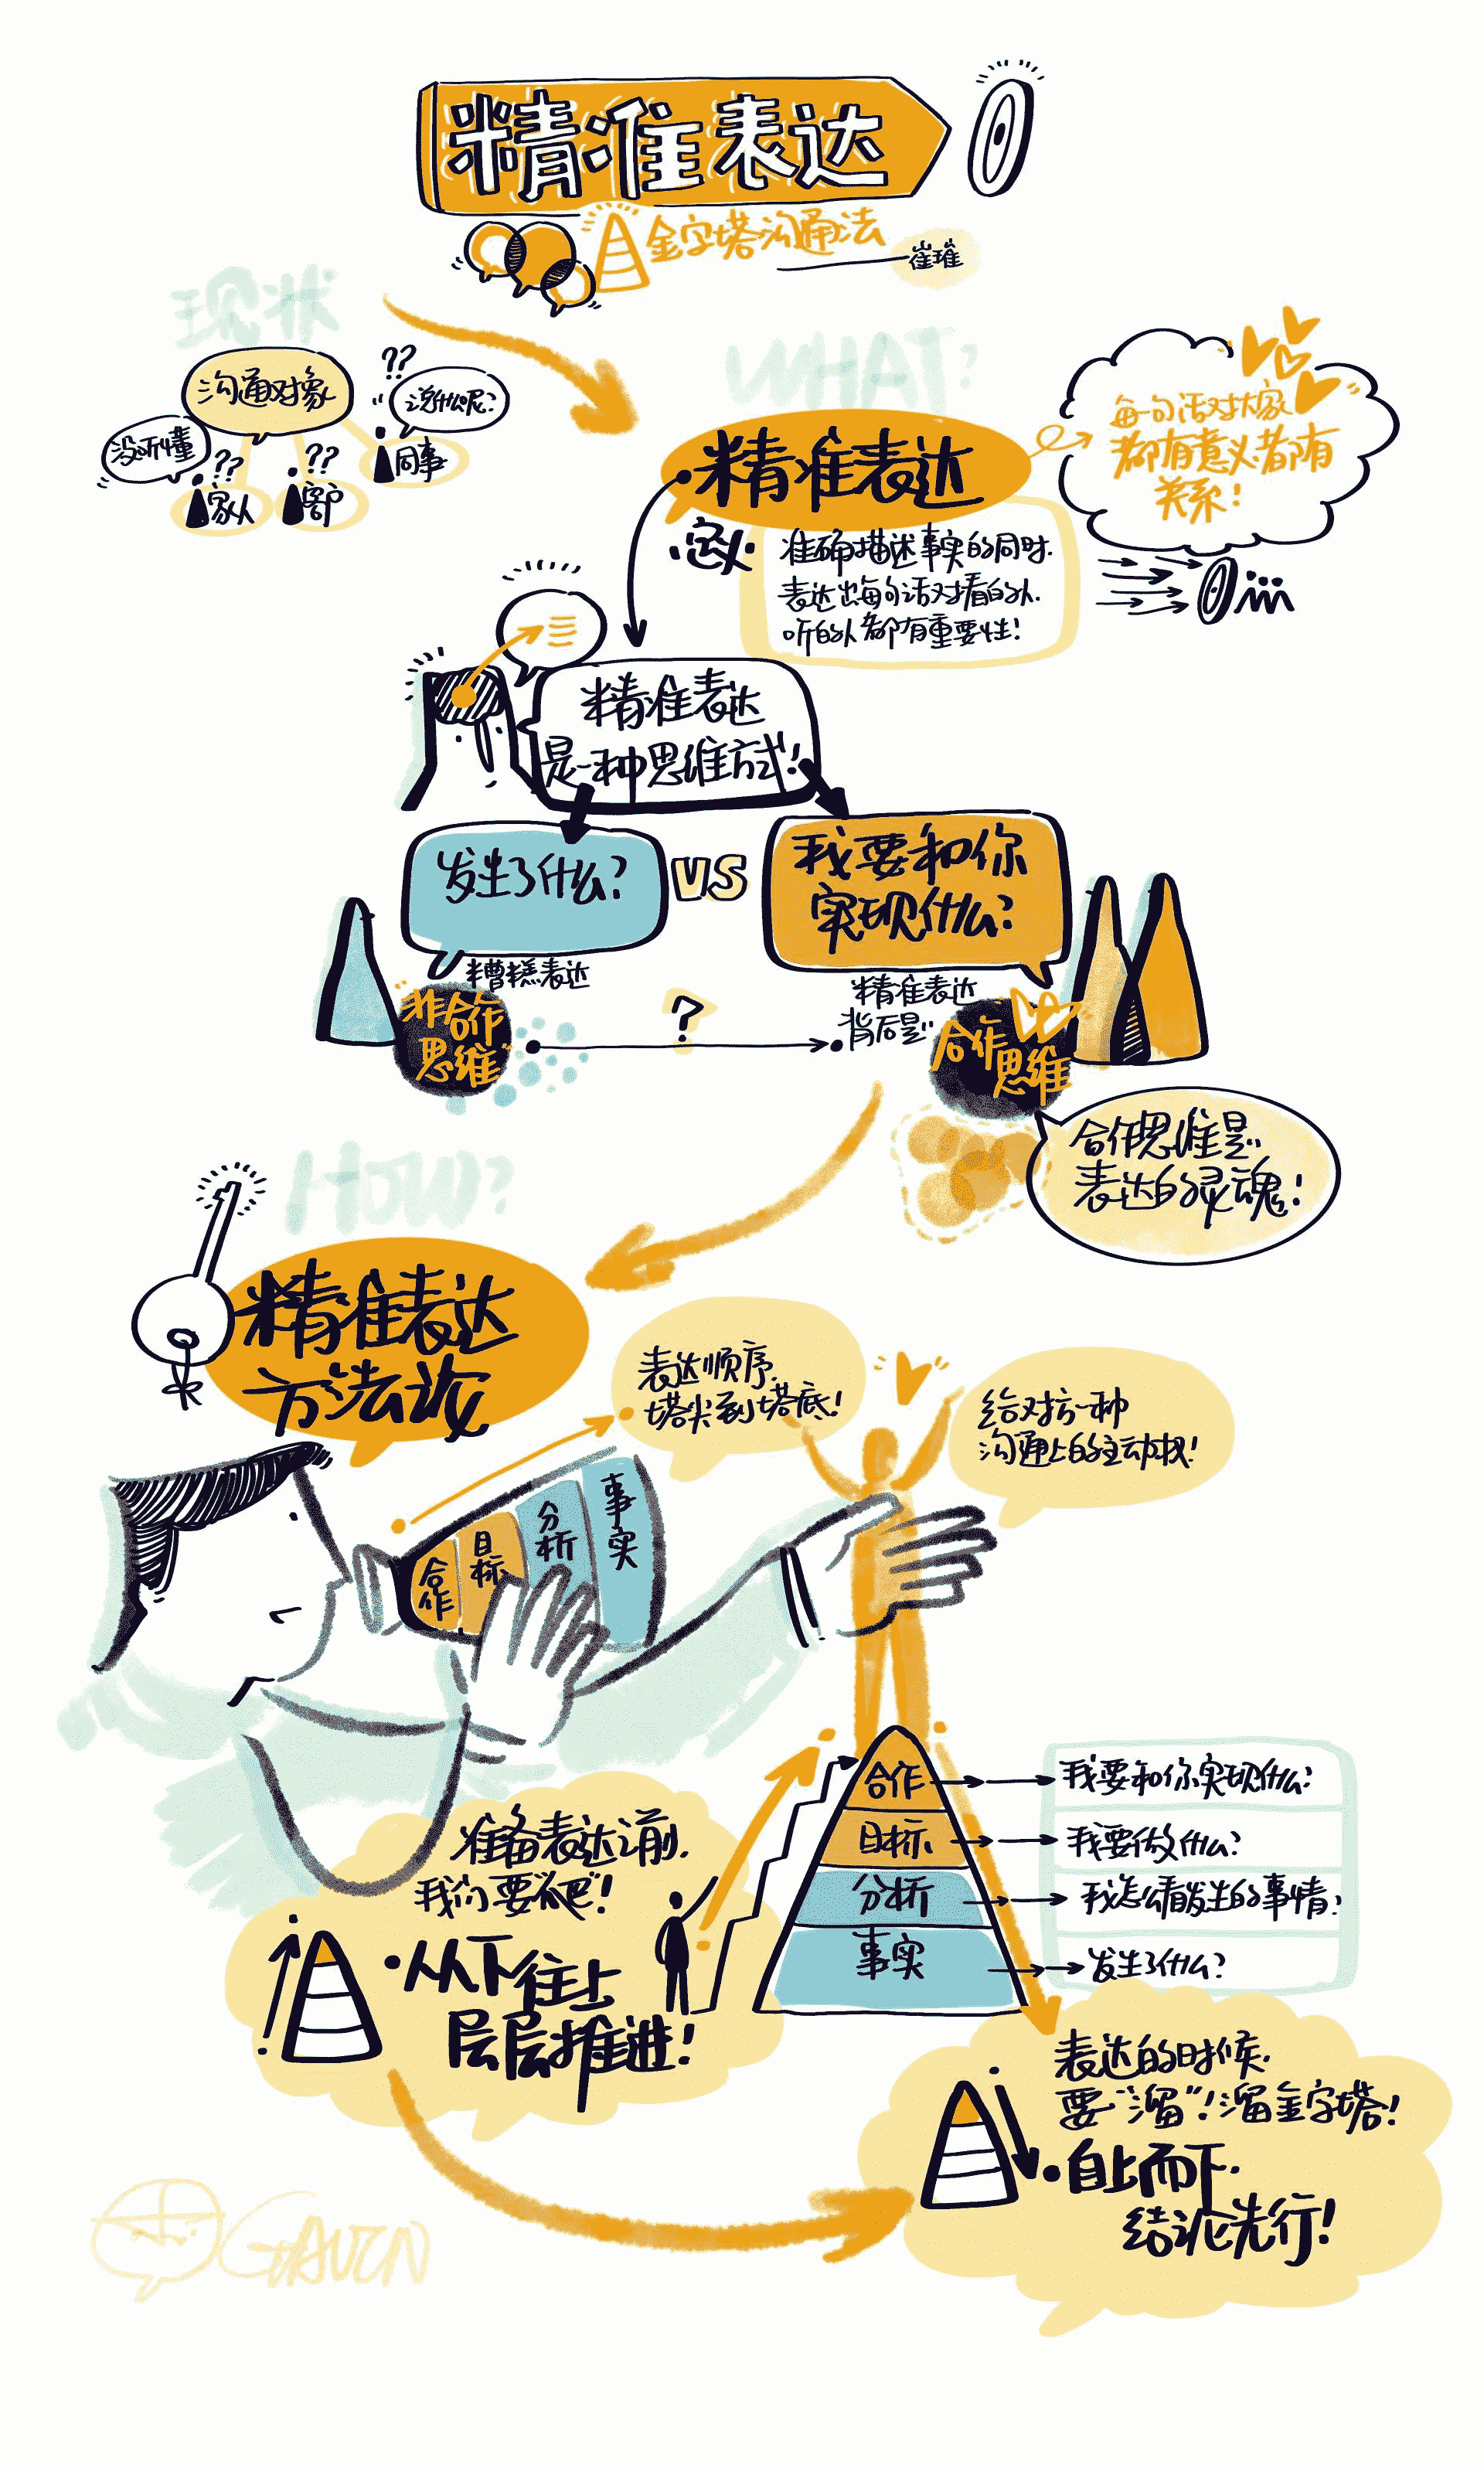 精准表达
金字塔沟通法
崔璀
现状
沟通对象
没听懂
??
家人
??
客户
??
说什么呢?
同事
WHAT?
精准表达
每一句话对大家
都有意义都有
关系!
·定义·
准确描述事实的同时.
表达出每句话对看的人.
听的人都有重要性!
精准表达
是一种思维方式!
发生了什么?
VS
我要和你
实现什么?
糟糕表达
"非合作
思维"
?
精准表达
背后是..
合作
思维
合作思维是..
表达的灵魂!
HOW?
精准表达
方法论
表达顺序.
塔尖到塔底!
给对方一种
沟通上的主动权!
合作
目标
分析
事实
合作
我要和你实现什么?
目标
我要做什么?
分析
我怎么看发生的事情?
事实
发生了什么?
准备表达之前.
我们要“爬”!
·从下往上
层层推进!
表达的时候.
要“溜”!溜金字塔!
·自上而下.
结论先行!
GAVIN